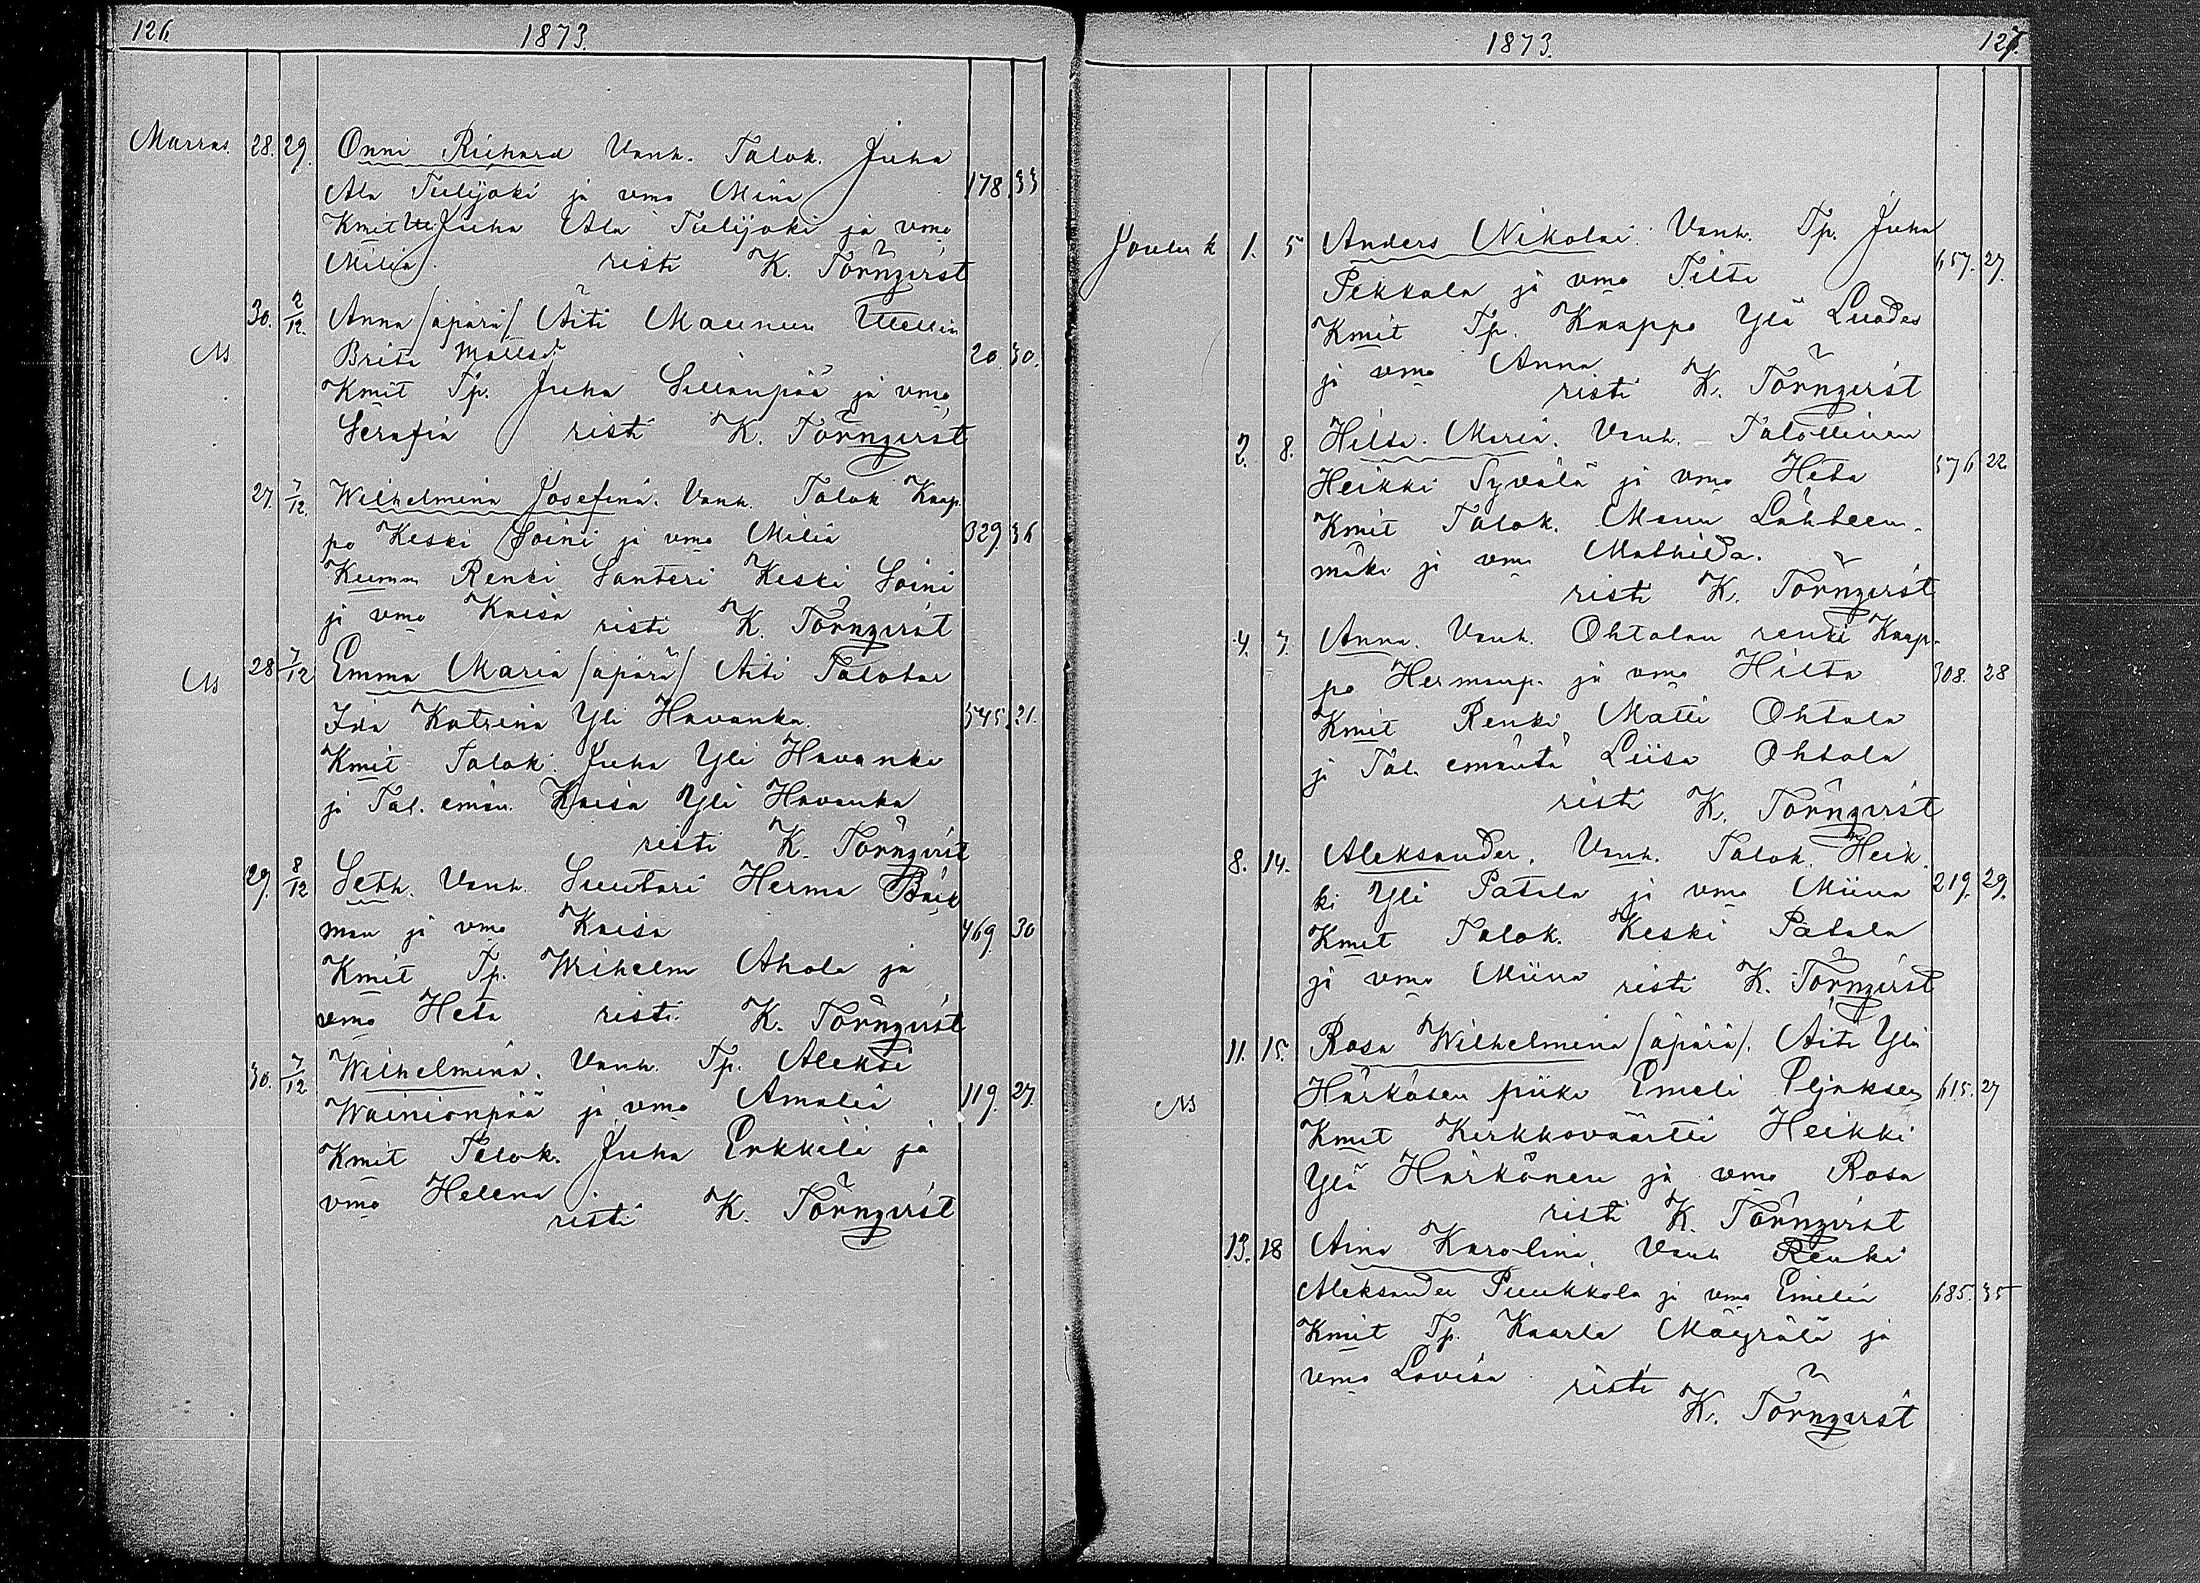 126.
1873.
Marras. 28. 29. Onni Richard Vanh. Talok. Juha
Ala Tulijoki ja vmo Miina 178. 33
Kmit Juha Ala Tulijoki ja vmo
Milia risti K. Törnqvist
30. 2/12. Anna /äpärä/ Äiti
Brita Mattsd. 20. 30.
Kmit Tp. Juha Sillanpää ja vmo
Serafia risti K. Törnqvist
27. 7/12. Wilhelmina Josefina. Vanh. Talok Kaap
po Keski Soini ja vmo Milia 329. 36
Kumm Renki Santeri Keski Soini
ja vmo Kaisa risti K. Törnqvist
28 7/12 Emma Maria /äpärä/ Äiti Talotar
Ida Katrina Yli Havanka. 545. 21.
Kmit Talok. Juha Yli Havanka
ja Tal. emän. Kaisa Yli Havanka
risti K. Törnqvist
29. 8/12 Seth. Vanh. Suutari Herma Bäck
man ja vmo Kaisa 469. 30
Kmit Tp. Wilhelm Ahola ja
vmo Heta risti K. Törnqvist
30. 7/12 Wilhelmina. Vanh. Tp. Aleksi
Wainionpää ja vmo Amalia 119. 27.
Kmit Talok. Juha Erkkilä ja
vmo Helena
risti K. Törnqvist
1873.
127.
Jouluk 1. 5 Anders Nikolai Vanh. Tp. Juha
Pekkala ja vmo Tilta 657. 27.
Kmit Tp. Kaappo Ylä Luodes
ja vmo Anna
risti K. Törnqvist
2. 8. Hilta Maria. Vanh. Talollinen
Heikki Syvälä ja vmo Heta 576 22
Kmit Talok. Manu Lähteen-
mäki ja vmo Mathilda.
risti K. Törnqvist
4. 7. Anna. Vanh. Ohtolan renki Kaap-
po Hermanp. ja vmo Hilta 308. 28
Kmit Renki Matti Ohtola
ja Tal. emäntä Liisa Ohtola
risti K. Törnqvist
8. 14. Aleksander. Vanh. Talok. Heik
ki Yli Patala ja vmo Miina 219. 29.
Kmit Talok. Keski Patala
ja vmo Miina risti K. Törnqvist
11. 15. Rosa Wilhelmina /äpärä/. Äiti Ylä
Härkösen piika Emeli 615. 27
Kmit Kirkkoväärtti Heikki
Ylä Härkönen ja vmo Rosa
risti K. Törnqvist
13. 18 Aina Karolina Vanh Renki
Aleksander Puukkola ja vmo Emilia 685. 35
Kmit Tp. Kaarle Mäyrälä ja
vmo Lovisa risti
K. Törnqvist